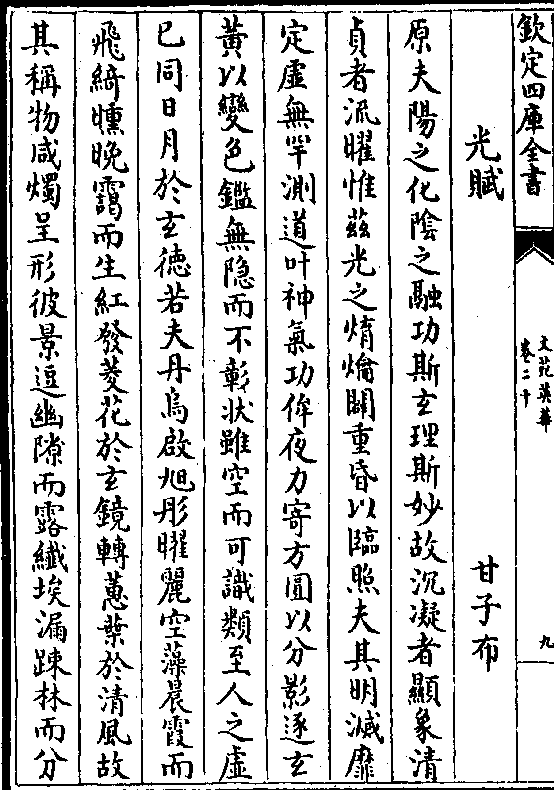 欽定四庫全書
文苑英華
卷二十
九
光賦
甘子布
原夫陽之化陰之融功斯玄理斯妙故沉凝者顯象清
貞者流曜惟茲光之焴爚闢重昏以臨照夫其明滅靡
定虚無罕測道叶神氣功侔夜力寄方圓以分影逐玄
黄以變色鑑無隐而不彰狀雖空而可識類至人之虚
已同日月於玄德若夫丹烏啟旭彤曜麗空藻晨霞而
飛綺曛晚靄而生紅發菱花於玄鏡轉蕙葉於清風故
其稱物咸燭呈形彼景逗幽隙而露纖埃漏踈林而分